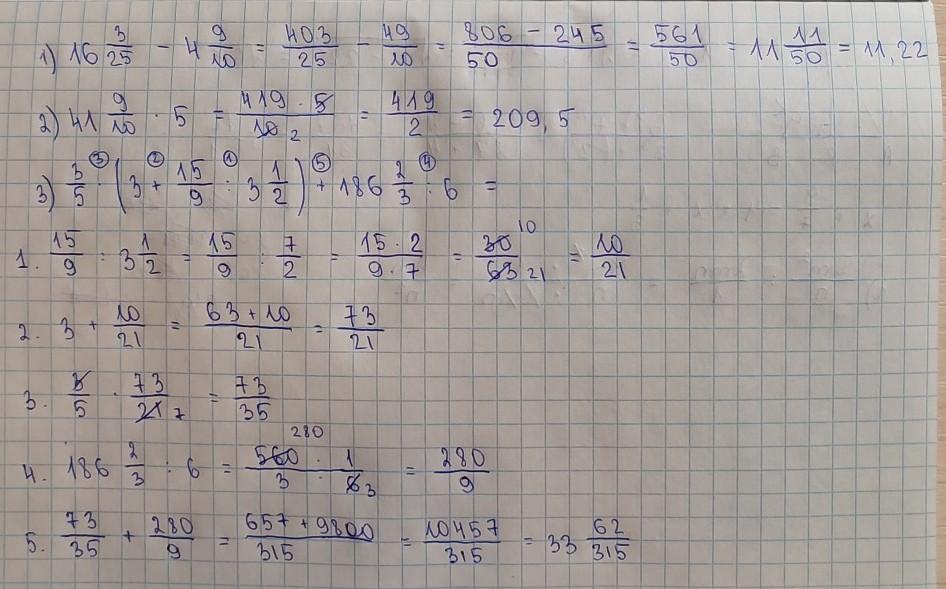 1) 16 3/25 - 4 9/10 = 403/25 - 49/10 = (806 - 245)/50 = 561/50 = 11 11/50 = 11,22
2) 41 9/10 · 5 = (419 · 5)/(10 2) = 419/2 = 209,5
3) 3/5 ③· (3 ②+ 15/9 ①: 3 1/2) ⑤+ 186 2/3 ④: 6 =
1. 15/9 : 3 1/2 = 15/9 : 7/2 = (15 · 2)/(9 · 7) = 30 10/63 21 = 10/21
2. 3 + 10/21 = (63 + 10)/21 = 73/21
3. 3/5 · 73/21 7 = 73/35
4. 186 2/3 : 6 = (560 280 · 1)/(3 · 6 3) = 280/9
5. 73/35 + 280/9 = (657 + 9800)/315 = 10457/315 = 33 62/315